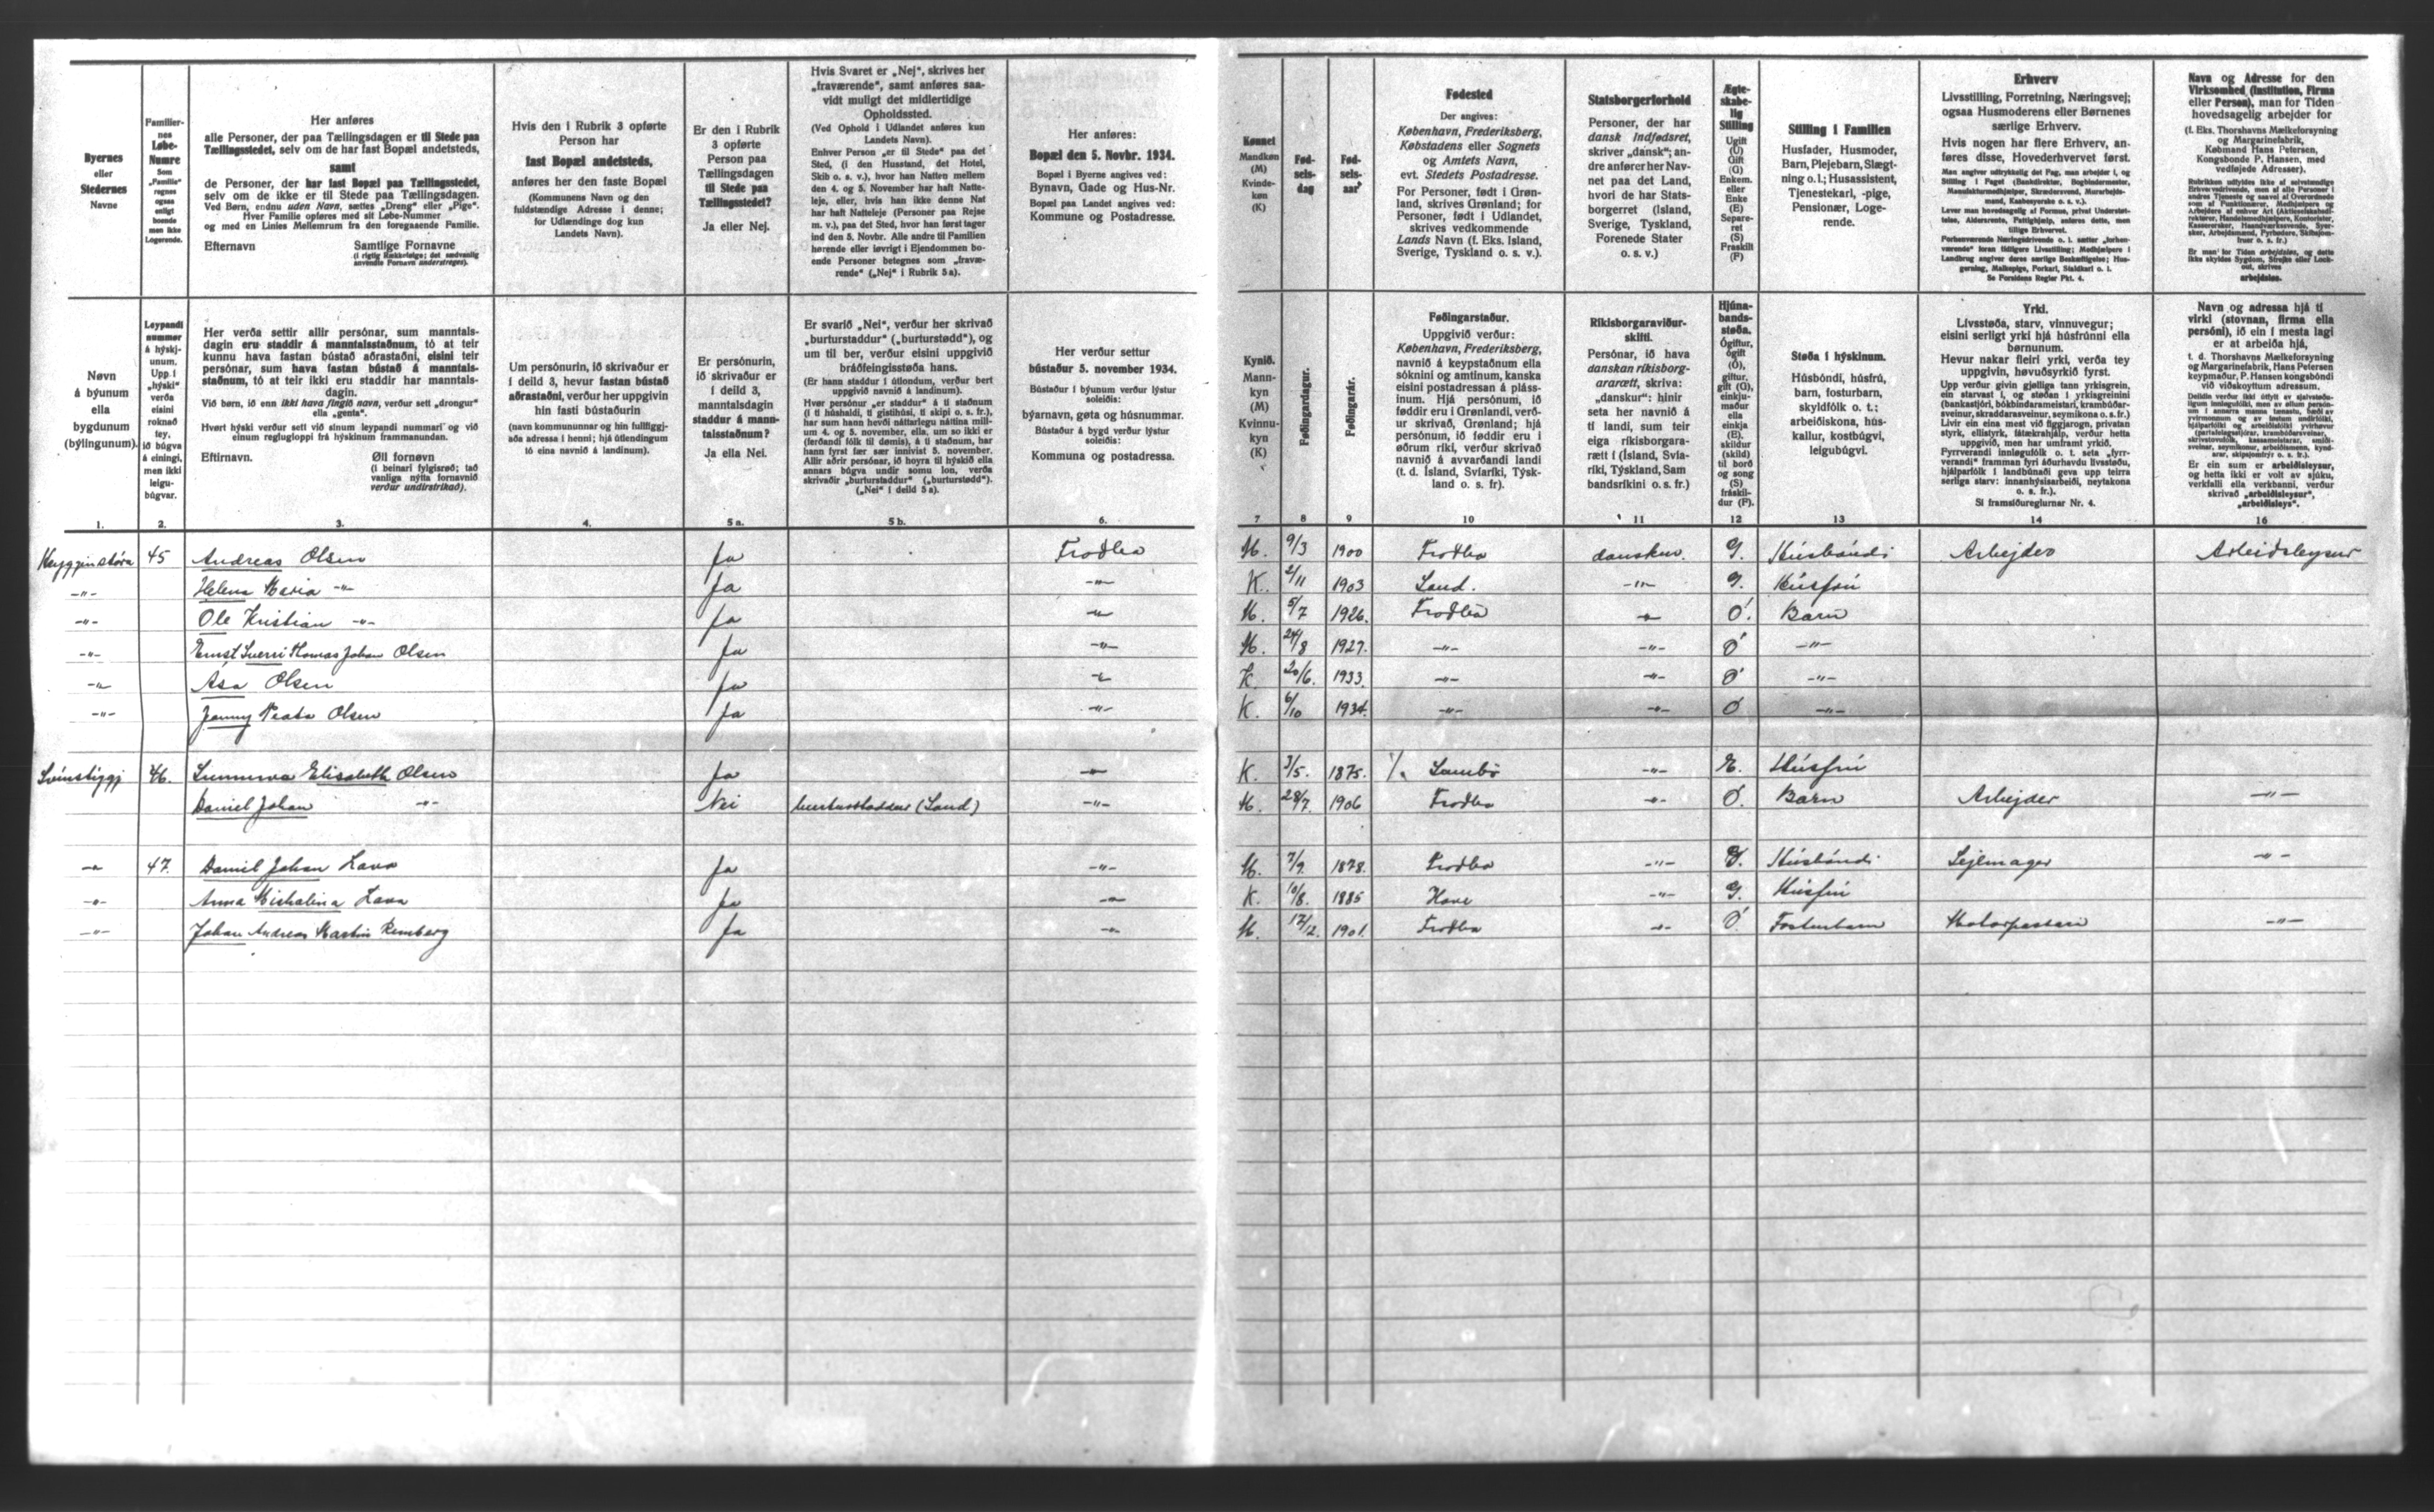 Byernes
eller
Stedernes
Navne
Familier-
nes
Løbe-
Numre
Som
„Familie“
regnes
ogsaa
enligt
boende
men ikke
Logerende.
Her anføres
alle Personer, der paa Tællingsdagen er til Stede paa
Tællingsstedet, selv om de har fast Bopæl andetsteds,
samt
de Personer, der har fast Bopæl paa Tællingsstedet,
selv om de ikke er til Stede paa Tællingsdagen.
Ved Børn, endnu uden Navn, sættes „Dreng“ eller „Pige“.
Hver Familie opføres med sit Løbe-Nummer
og med en Linies Mellemrum fra den foregaaende Familie.
Efternavn Samtlige Fornavne
(i rigtig Rækkefølge; det sædvanlig
anvendte Fornavn understreges).
Hvis den i Rubrik 3 opførte
Person har
fast Bopæl andetsteds,
anføres her den faste Bopæl
(Kommunens Navn og den
fuldstændige Adresse i denne;
for Udlændinge dog kun
Landets Navn).
Er den i Rubrik
3 opførte
Person paa
Tællingsdagen
til Stede paa
Tællingsstedet?
Ja eller Nej.
Hvis Svaret er „Nej“, skrives her
„fraværende“, samt anføres saa-
vidt muligt det midlertidige
Opholdssted.
(Ved Ophold i Udlandet anføres kun
Landets Navn).
Enhver Person „er til Stede“ paa det
Sted, (i den Husstand, det Hotel,
Skib o. s. v.), hvor han Natten mellem
den 4. og 5. November har haft Natte-
leje, eller, hvis han ikke denne Nat
har haft Natteleje (Personer paa Rejse
m. v.), paa det Sted, hvor han først tager
ind den 5. Novbr. Alle andre til Familien
hørende eller iøvrigt i Ejendommen bo-
ende Personer betegnes som „fravæ-
rende“ („Nej“ i Rubrik 5a).
Her anføres:
Bopæl den 5. Novbr. 1934.
Bopæl i Byerne angives ved:
Bynavn, Gade og Hus-Nr.
Bopæl paa Landet angives ved:
Kommune og Postadresse.
Kønnet
Mandkøn
(M)
Kvinde-
køn
(K)
Fød-
sels-
dag
Fød-
sels-
aar
Fødested
Der angives:
København, Frederiksberg,
Købstadens eller Sognets
og Amtets Navn,
evt. Stedets Postadresse.
For Personer, født i Grøn-
land, skrives Grønland; for
Personer, født i Udlandet,
skrives vedkommende
Lands Navn (f. Eks. Island,
Sverige, Tyskland o. s. v.).
Statsborgerforhold
Personer, der har
dansk Indfødsret,
skriver „dansk“; an-
dre anfører her Nav-
net paa det Land,
hvori de har Stats-
borgerret (Island,
Sverige, Tyskland,
Forenede Stater
o. s. v.)
Ægte-
skabe-
lig
Stilling
Ugift
(U)
Gift
(G)
Enkem.
eller
Enke
(E)
Separe-
ret
(S)
Fraskilt
(F)
Stilling i Familien
Husfader, Husmoder,
Barn, Plejebarn, Slægt-
ning o.l.; Husassistent,
Tjenestekarl, -pige,
Pensionær, Loge-
rende.
Erhverv
Livsstilling, Forretning, Næringsvej;
ogsaa Husmoderens eller Børnenes
særlige Erhverv.
Hvis nogen har flere Erhverv, an-
føres disse, Hovederhvervet først.
Se Forsidens Regler Pkt. 4.
Navn og Adresse for den
Virksomhed (Institution, Firma
eller Person), man for Tiden
hovedsagelig arbejder for
(f. Eks. Thorshavns Mælkeforsyning
og Margarinefabrik,
Købmand Hans Petersen,
Kongsbonde P. Hansen, med
vedføjede Adresser).
arbejdsløs.
Nøvn
á býunum
ella
bygdunum
(býlingunum).
Leypandi
nummer
á hýskj-
unum.
Upp. í
„hýski“
verða
eisini
roknað
tey,
ið búgva
á einingi,
men ikki
leigu-
búgvar.
Her verða settir allir persónar, sum manntals-
dagin eru staddir á manntalsstaðnum, tó at teir
kunnu hava fastan bústað aðrastaðni, eisini teir
persónar, sum hava fastan bústað á manntals-
staðnum, tó at teir ikki eru staddir har manntals-
dagin.
Við børn, ið enn ikki hava fingið navn, verður sett „drongur“
ella „genta“.
Hvørt hýski verður sett við sínum leypandi nummari og við
einum reglugloppi frá hýskinum frammanundan.
Eftirnavn. Øll fornøvn
(í beinari fylgisrøð; tað
vanliga nýtta fornavnið
verður undirstrikað).
Um persónurin, ið skrivaður er
í deild 3, hevur fastan bústað
aðrastaðni, verður her uppgivin
hin fasti bústaðurin
(navn kommununnar og hin fullfíggj-
aða adressa í henni; hjá útlendingum
tó eina navnið á landinum).
Er persónurin,
ið skrivaður er
í deild 3,
manntalsdagin
staddur á mann-
talsstaðnum?
Ja ella Nei.
Er svarið „Nei“, verður her skrivað
„burturstaddur“ („burturstødd“), og
um til ber, verður eisini uppgivið
bráðfeingisstøða hans.
(Er hann staddur í útlondum, verður bert
uppgivið navnið á landinum).
Hvør persónur „er staddur“ á tí staðnum
(í tí húshaldi, tí gistihúsi, tí skipi o. s. fr.),
har sum hann hevði náttarlegu náttina mill-
um 4. og 5. november, ella, um so ikki er
(ferðandi fólk til dømis), á tí staðnum, har
hann fyrst fær sær innivist 5. november.
Allir aðrir persónar, ið hoyra til hýskið ella
annars búgva undir somu lon, verða
skrivaðir „burturstaddur“ („burturstødd“).
(„Nei“ í deild 5 a).
Her verður settur
bústaður 5. november 1934.
Bústaður í býunum verður lýstur
soleiðis:
býarnavn, gøta og húsnummar.
Bústaður á bygd verður lýstur
soleiðis:
Kommuna og postadressa.
Kynið.
Mann-
kyn
(M)
Kvinnu-
kyn
(K)
Føðingardagur.
Føðingarár.
Føðingarstaður.
Uppgivið verður:
København, Frederiksberg,
navnið á keypstaðnum ella
sóknini og amtinum, kanska
eisini postadressan á pláss-
inum. Hjá persónum, ið
føddir eru í Grønlandi, verð-
ur skrivað, Grønland; hjá
persónum, ið føddir eru í
øðrum ríki, verður skrivað
navnið á avvarðandi landi
(t. d. Ísland, Svíaríki, Týsk-
land o. s. fr).
Ríkisborgaraviður-
skifti.
Persónar, ið hava
danskan ríkisborg-
ararætt, skriva:
„danskur“: hinir
seta her navnið á
tí landi, sum teir
eiga ríkisborgara-
rætt í (Ísland, Svía-
ríki, Týskland, Sam
bandsríkini o. s. fr.)
Hjúna-
bands-
støða.
Ógiftur,
ógift
(Ó),
giftur,
gift (G),
einkju-
maður
ella
einkja
(E).
skildur
(skild)
til borð
og song
(S)
fráskil-
dur (F).
Støða í hýskinum.
Húsbóndi, húsfrú,
barn, fosturbarn,
skyldfólk o. t.;
arbeiðiskona, hús-
kallur, kostbúgvi,
leigubúgvi.
Yrki.
Lívsstøða, starv, vinnuvegur;
eisini serligt yrki hjá húsfrúnni ella
børnunum.
Hevur nakar fleiri yrki, verða tey
uppgivin, høvuðsyrkið fyrst.
Sí framsíðureglurnar Nr. 4.
Navn og adressa hjá tí
virki (stovnan, firma ella
persóni), ið ein í mesta lagi
er at arbeiða hjá,
t. d. Thorshavns Mælkeforsyning
og Margarinefabrik, Hans Petersen
keypmaður, P. Hansen kongsbóndi
við viðskoyttum adressum.
Er ein sum er arbeiðsleysur,
og hetta ikki er volt av sjúku,
verkfalli ella verkbanni, verður
skrivað „arbeiðsleysur“,
„arbeiðsleys“.
1. 2. 3. 4. 5 a. 5 b. 6. 7 8 9 10 11 12 13 14 16
45 Andreas Olsen Ja Froðba M. 9/3 1900 Froðba danskur. G. Húsbóndi Arbejder Arbeiðsleysur
-"- Helena Maria -"- Ja -"- K. 2/11 1903 Sand. -"- G. Húsfrú
-"- Ole Kristian -"- Ja -"- M. 5/7 1926. Froðba -"- Ó. Barn
-"- Ernst Sverri Thomas Johan Olsen Ja -"- M. 24/8 1927. -"- -"- Ó -"-
-"- Ása Olsen Ja -"- K. 20/6. 1933. -"- -"- Ó -"-
-"- Jenny Beata Olsen Ja -"- K. 6/10 1934. -"- -"- Ó -"-
46. Sunneva Elisabeth Olsen Ja -"- K. 3/5. 1875. Sambø -"- E. Húsfrú
Daniel Johan -"- Nei burturstaddur (Sand) -"- M. 28/7. 1906 Froðba -"- Ó. Barn Arbejder -"-
-"- 47. Daniel Johan Lava Ja -"- M. 7/9. 1878. Froðba -"- G. Húsbóndi Sejlmager -"-
-"- Anna Michalina Lava Ja -"- K. 10/8. 1885 Hove -"- G. Húsfrú
-"- Johan Andreas Martin Remberg Ja -"- M. 17/12. 1901. Froðba -"- Ó Fosturbarn Motorpassari -"-